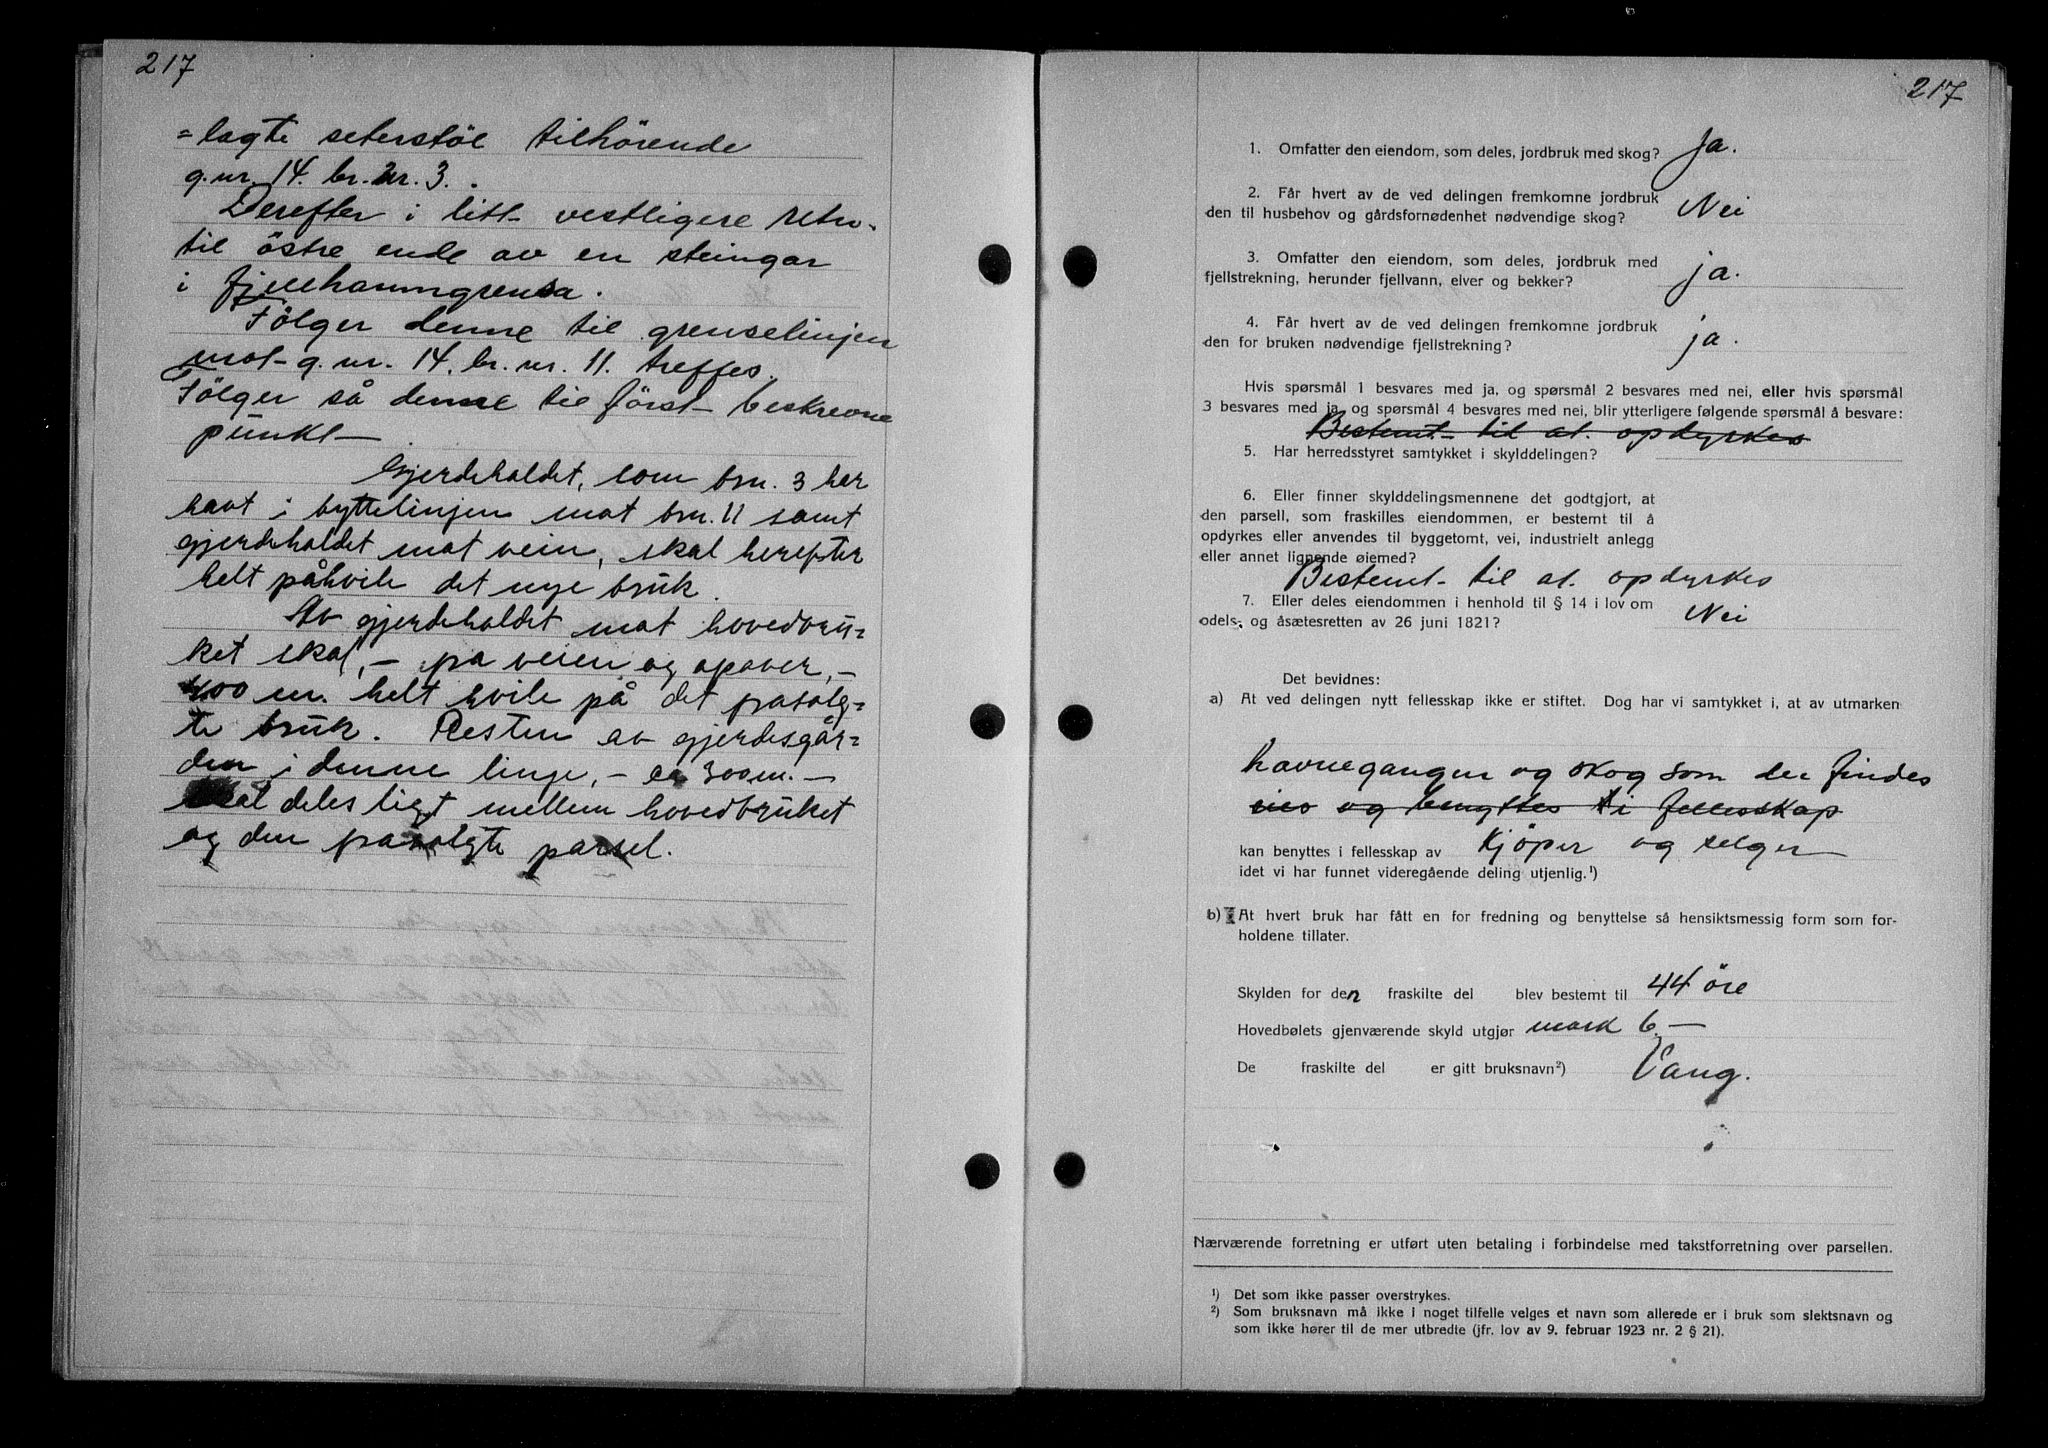 217
=lagte seterstöl tilhörende
g.nr. 14. br.nr. 3.
Derefter i litt vestligere retn.
til östre ende av en steingar
i fjellhamngrensa.
Fölger denne til grenselinjen
mot g.nr. 14. br.nr. 11. treffes.
Fölger så denne til först beskrevne
punkt
Gjerdeholdet, som brn. 3 har
havt i byttelinjen mot brn. 11 samt
gjerdeholdet mot vein, skal herefter
helt påhvile det nye bruk.
Av gjerdeholdet mot hovedbru-
ket skal, - fra veien og opover, -
400 m. helt hvile på det frasolg=
te bruk. Resten av gjerdesgår=
den i denne linje, - ca 300 m. -
skal deles ligt mellem hovedbruket
og den frasolgte parsel.
217
1. Omfatter den eiendom, som deles, jordbruk med skog? Ja.
2. Får hvert av de ved delingen fremkomne jordbruk
den til husbehov og gårdsfornødenhet nødvendige skog? Nei
3. Omfatter den eiendom, som deles, jordbruk med
fjellstrekning, herunder fjellvann, elver og bekker? ja.
4. Får hvert av de ved delingen fremkomne jordbruk
den for bruken nødvendige fjellstrekning? ja.
Hvis spørsmål 1 besvares med ja, og spørsmål 2 besvares med nei, eller hvis spørsmål
3 besvares med ja, og spørsmål 4 besvares med nei, blir ytterligere følgende spørsmål å besvare:
Bestemt til at. opdyrkes
5. Har herredsstyret samtykket i skylddelingen?
6. Eller finner skylddelingsmennene det godtgjort, at
den parsell, som fraskilles eiendommen, er bestemt til å
opdyrkes eller anvendes til byggetomt, vei, industrielt anlegg
eller annet lignende øiemed?
Bestemt til at. opdyrkes
7. Eller deles eiendommen i henhold til § 14 i lov om
odels- og åsætesretten av 26 juni 1821? Nei
Det bevidnes:
a) At ved delingen nytt fellesskap ikke er stiftet. Dog har vi samtykket i, at av utmarken
havneganger og skog som der findes
og benyttes i fellesskap
kan benyttes i fellesskap av Kjöper og selger
idet vi har funnet videregående deling utjenlig.¹)
b) At hvert bruk har fått en for fredning og benyttelse så hensiktsmessig form som for-
holdene tillater.
Skylden for den fraskilte del blev bestemt til 44 öre
Hovedbølets gjenværende skyld utgjør mark 6.-
De fraskilte del er gitt bruksnavn²) Vang.
Nærværende forretning er utført uten betaling i forbindelse med takstforretning over parsellen.
¹) Det som ikke passer overstrykes.
²) Som bruksnavn må ikke i noget tilfelle velges et navn som allerede er i bruk som slektsnavn og
som ikke hører til de mer utbredte (jfr. lov av 9. februar 1923 nr. 2 § 21).